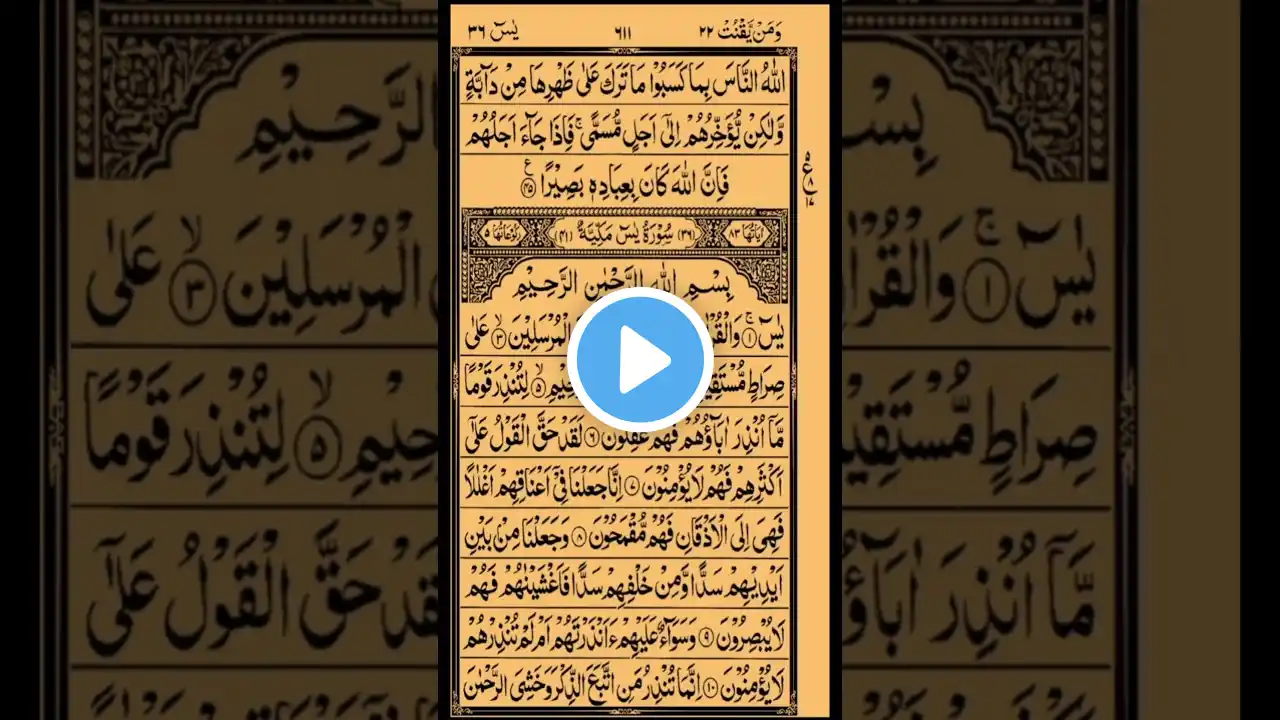 وَمَنْ يَّقْنُتْ ٢٢ ٦١١ يٰسٓ ٣٦
اللّٰهُ النَّاسَ بِمَا كَسَبُوْا مَا تَرَكَ عَلٰى ظَهْرِهَا مِنْ دَآبَّةٍ
وَّلٰكِنْ يُّؤَخِّرُهُمْ اِلٰٓى اَجَلٍ مُّسَمًّى ۚ فَاِذَا جَآءَ اَجَلُهُمْ
فَاِنَّ اللّٰهَ كَانَ بِعِبَادِهٖ بَصِيْرًا ﴿٤٥﴾
اٰيَاتُهَا ٨٣ (٣٦) سُوْرَةُ يٰسٓ مَكِّيَّةٌ (٤١) رُكُوْعَاتُهَا ٥
بِسْمِ اللّٰهِ الرَّحْمٰنِ الرَّحِيْمِ
يٰسٓ ﴿١﴾ ۚ وَالْقُرْ الْمُرْسَلِيْنَ ﴿٣﴾ ۙ عَلٰى
صِرَاطٍ مُّسْتَقِيْ حِيْمِ ﴿٥﴾ ۙ لِتُنْذِرَ قَوْمًا
مَّآ اُنْذِرَ اٰبَآؤُهُمْ فَهُمْ غٰفِلُوْنَ ﴿٦﴾ لَقَدْ حَقَّ الْقَوْلُ عَلٰٓى
اَكْثَرِهِمْ فَهُمْ لَا يُؤْمِنُوْنَ ﴿٧﴾ اِنَّا جَعَلْنَا فِيْٓ اَعْنَاقِهِمْ اَغْلٰلًا
فَهِيَ اِلَى الْاَذْقَانِ فَهُمْ مُّقْمَحُوْنَ ﴿٨﴾ وَجَعَلْنَا مِنْۢ بَيْنِ
اَيْدِيْهِمْ سَدًّا وَّمِنْ خَلْفِهِمْ سَدًّا فَاَغْشَيْنٰهُمْ فَهُمْ
لَا يُبْصِرُوْنَ ﴿٩﴾ وَسَوَآءٌ عَلَيْهِمْ ءَاَنْذَرْتَهُمْ اَمْ لَمْ تُنْذِرْهُمْ
لَا يُؤْمِنُوْنَ ﴿١٠﴾ اِنَّمَا تُنْذِرُ مَنِ اتَّبَعَ الذِّكْرَ وَخَشِيَ الرَّحْمٰنَ